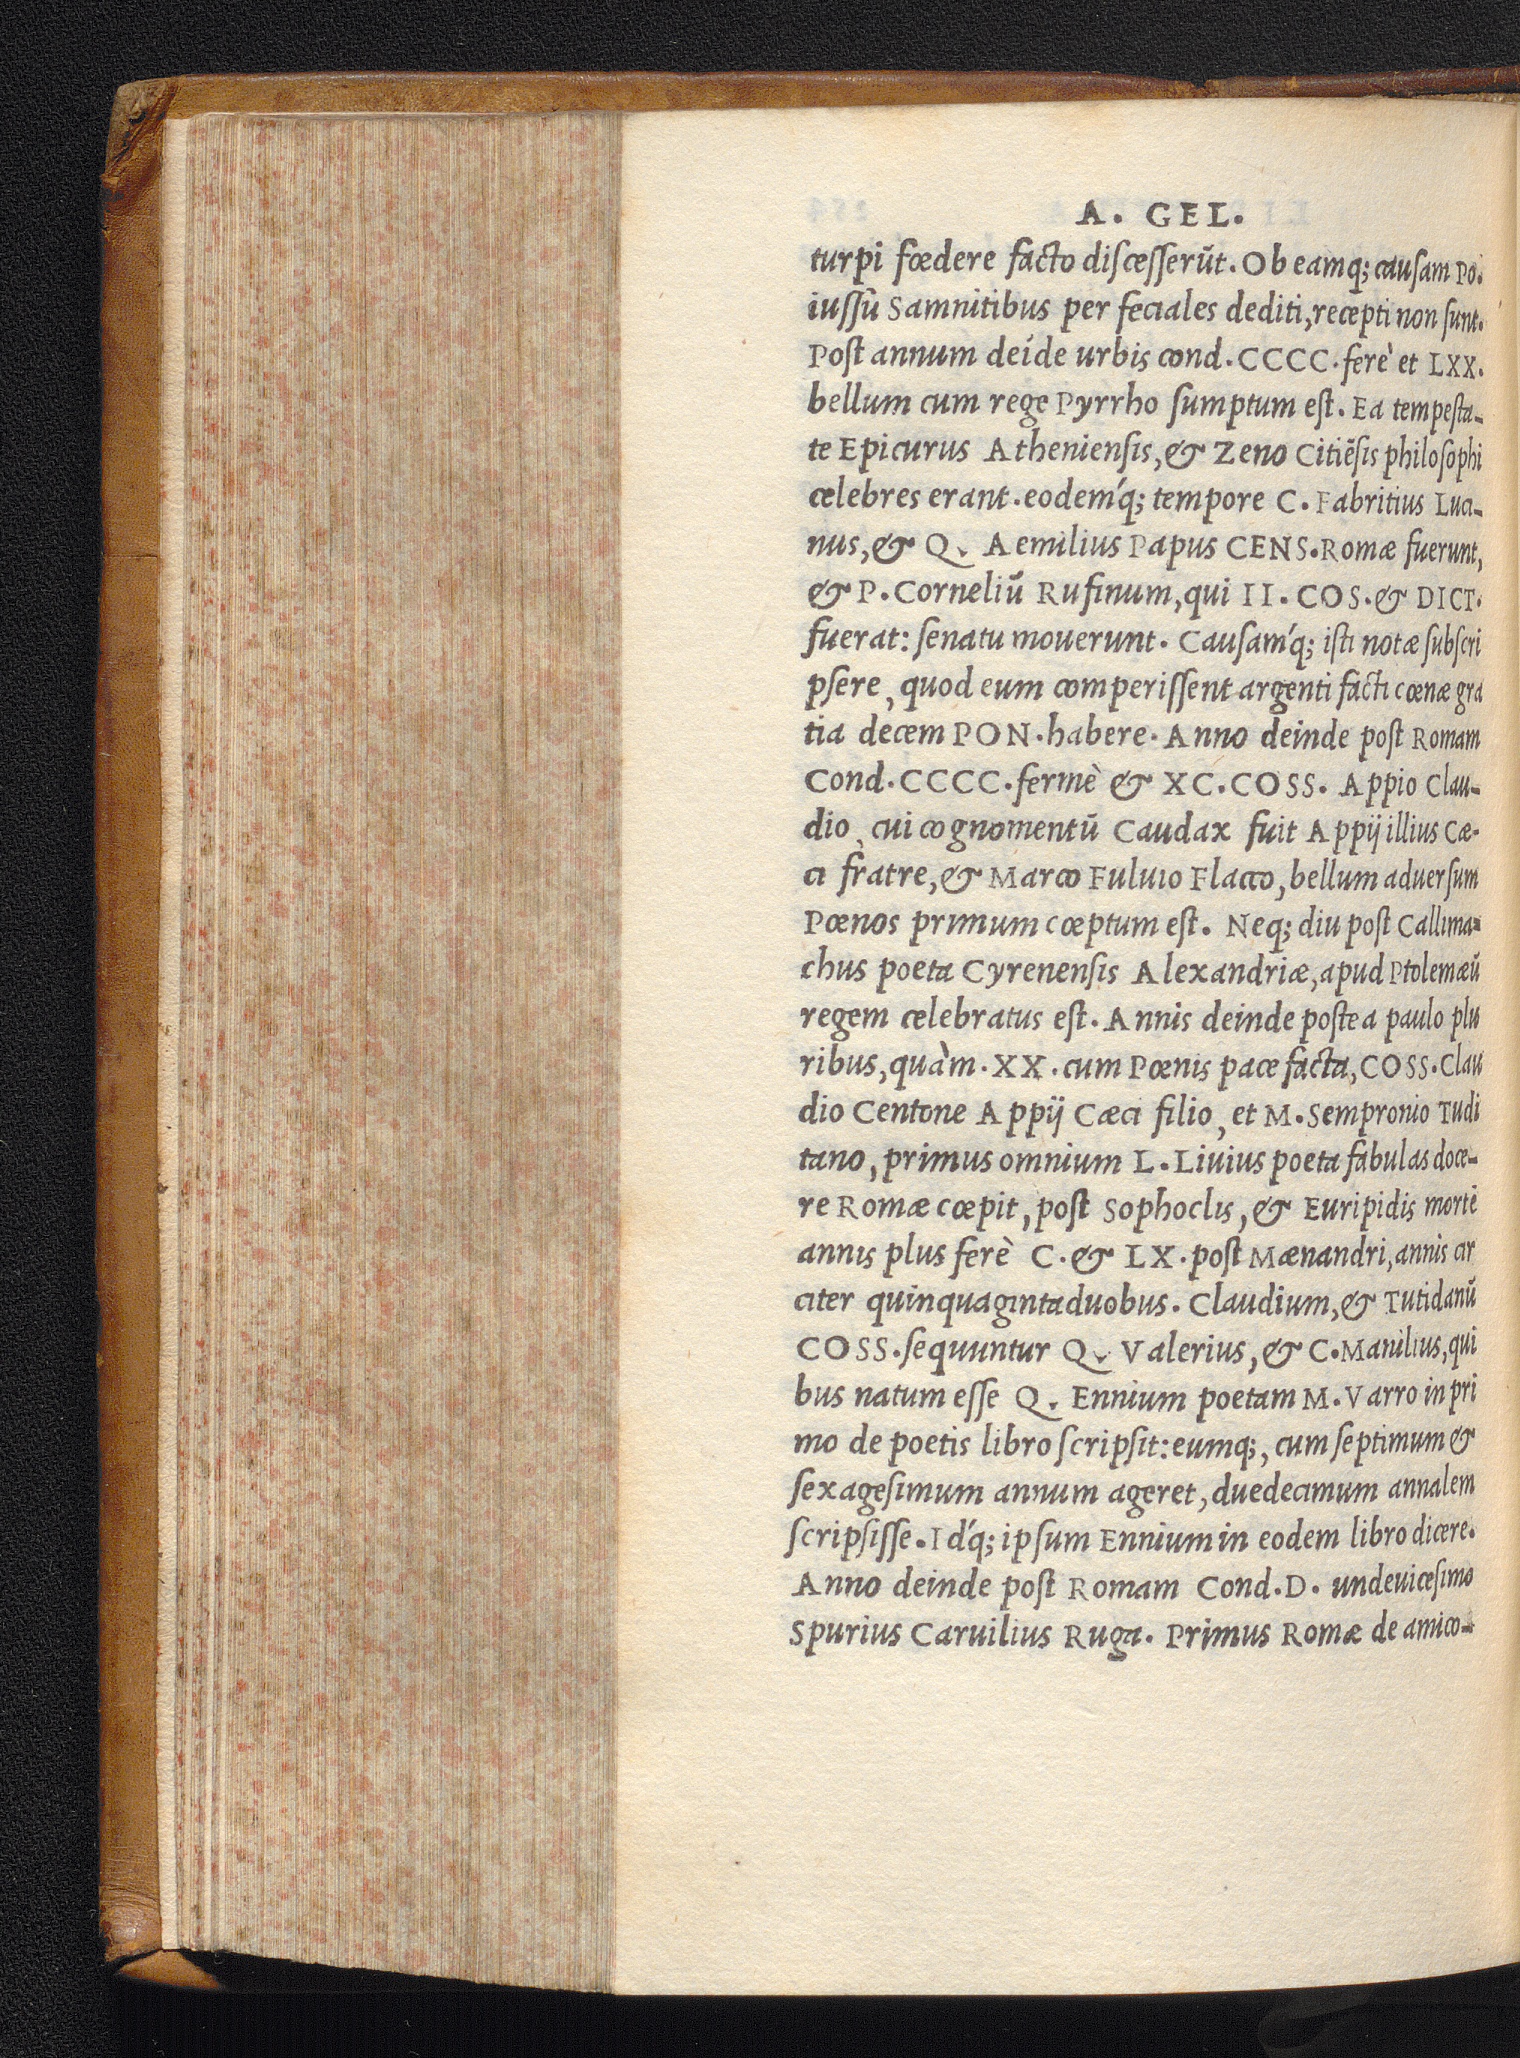 A. GEL.
turpi fœdere facto discesserūt. Ob eamq; causam Po.
iussū Samnitibus per feciales dediti, recepti non sunt.
Post annum deíde urbis cond. CCCC. ferè et LXX.
bellum cum rege Pyrrho sumptum est. Ea tempesta-
te Epicurus Atheniensis, & Zeno Citiēsis philosophi
celebres erant. eodemq́; tempore C. Fabritius Luci-
nus, & Q. Aemilius Papus CENS. Romæ fuerunt,
& P. Corneliū Rufinum, qui II. COS. & DICT.
fuerat: senatu mouerunt. Causamq́; isti notæ subscri
psere, quod eum comperissent argenti facti cœnæ gra
tia decem PON. habere. Anno deinde post Romam
Cond. CCCC. fermè & XC. COSS. Appio Clau-
dio, cui cognomentū Caudax fuit Appij illius Cæ-
ci fratre, & Marco Fuluio Flacco, bellum aduersum
Pœnos primum cœptum est. Neq; diu post Callima-
chus poeta Cyrenensis Alexandriæ, apud Ptolemæū
regem celebratus est. Annis deinde postea paulo plu
ribus, quàm. XX. cum Pœnis pace facta, COSS. Clau
dio Centone Appij Cæci filio, et M. Sempronio Tudi
tano, primus omnium L. Liuius poeta fabulas doce-
re Romæ cœpit, post Sophoclis, & Euripidis mortē
annis plus ferè C. & LX. post Mænandri, annis cir
citer quinquagintaduobus. Claudium, & Tutidanū
COSS. sequuntur Q. Valerius, & C. Manilius, qui
bus natum esse Q. Ennium poetam M. Varro in pri
mo de poetis libro scripsit: eumq;, cum septimum &
sexagesimum annum ageret, duedecimum annalem
scripsisse. Idq́; ipsum Ennium in eodem libro dicere.
Anno deinde post Romam Cond. D. undeuicesimo
Spurius Caruilius Ruga. Primus Romæ de amico-